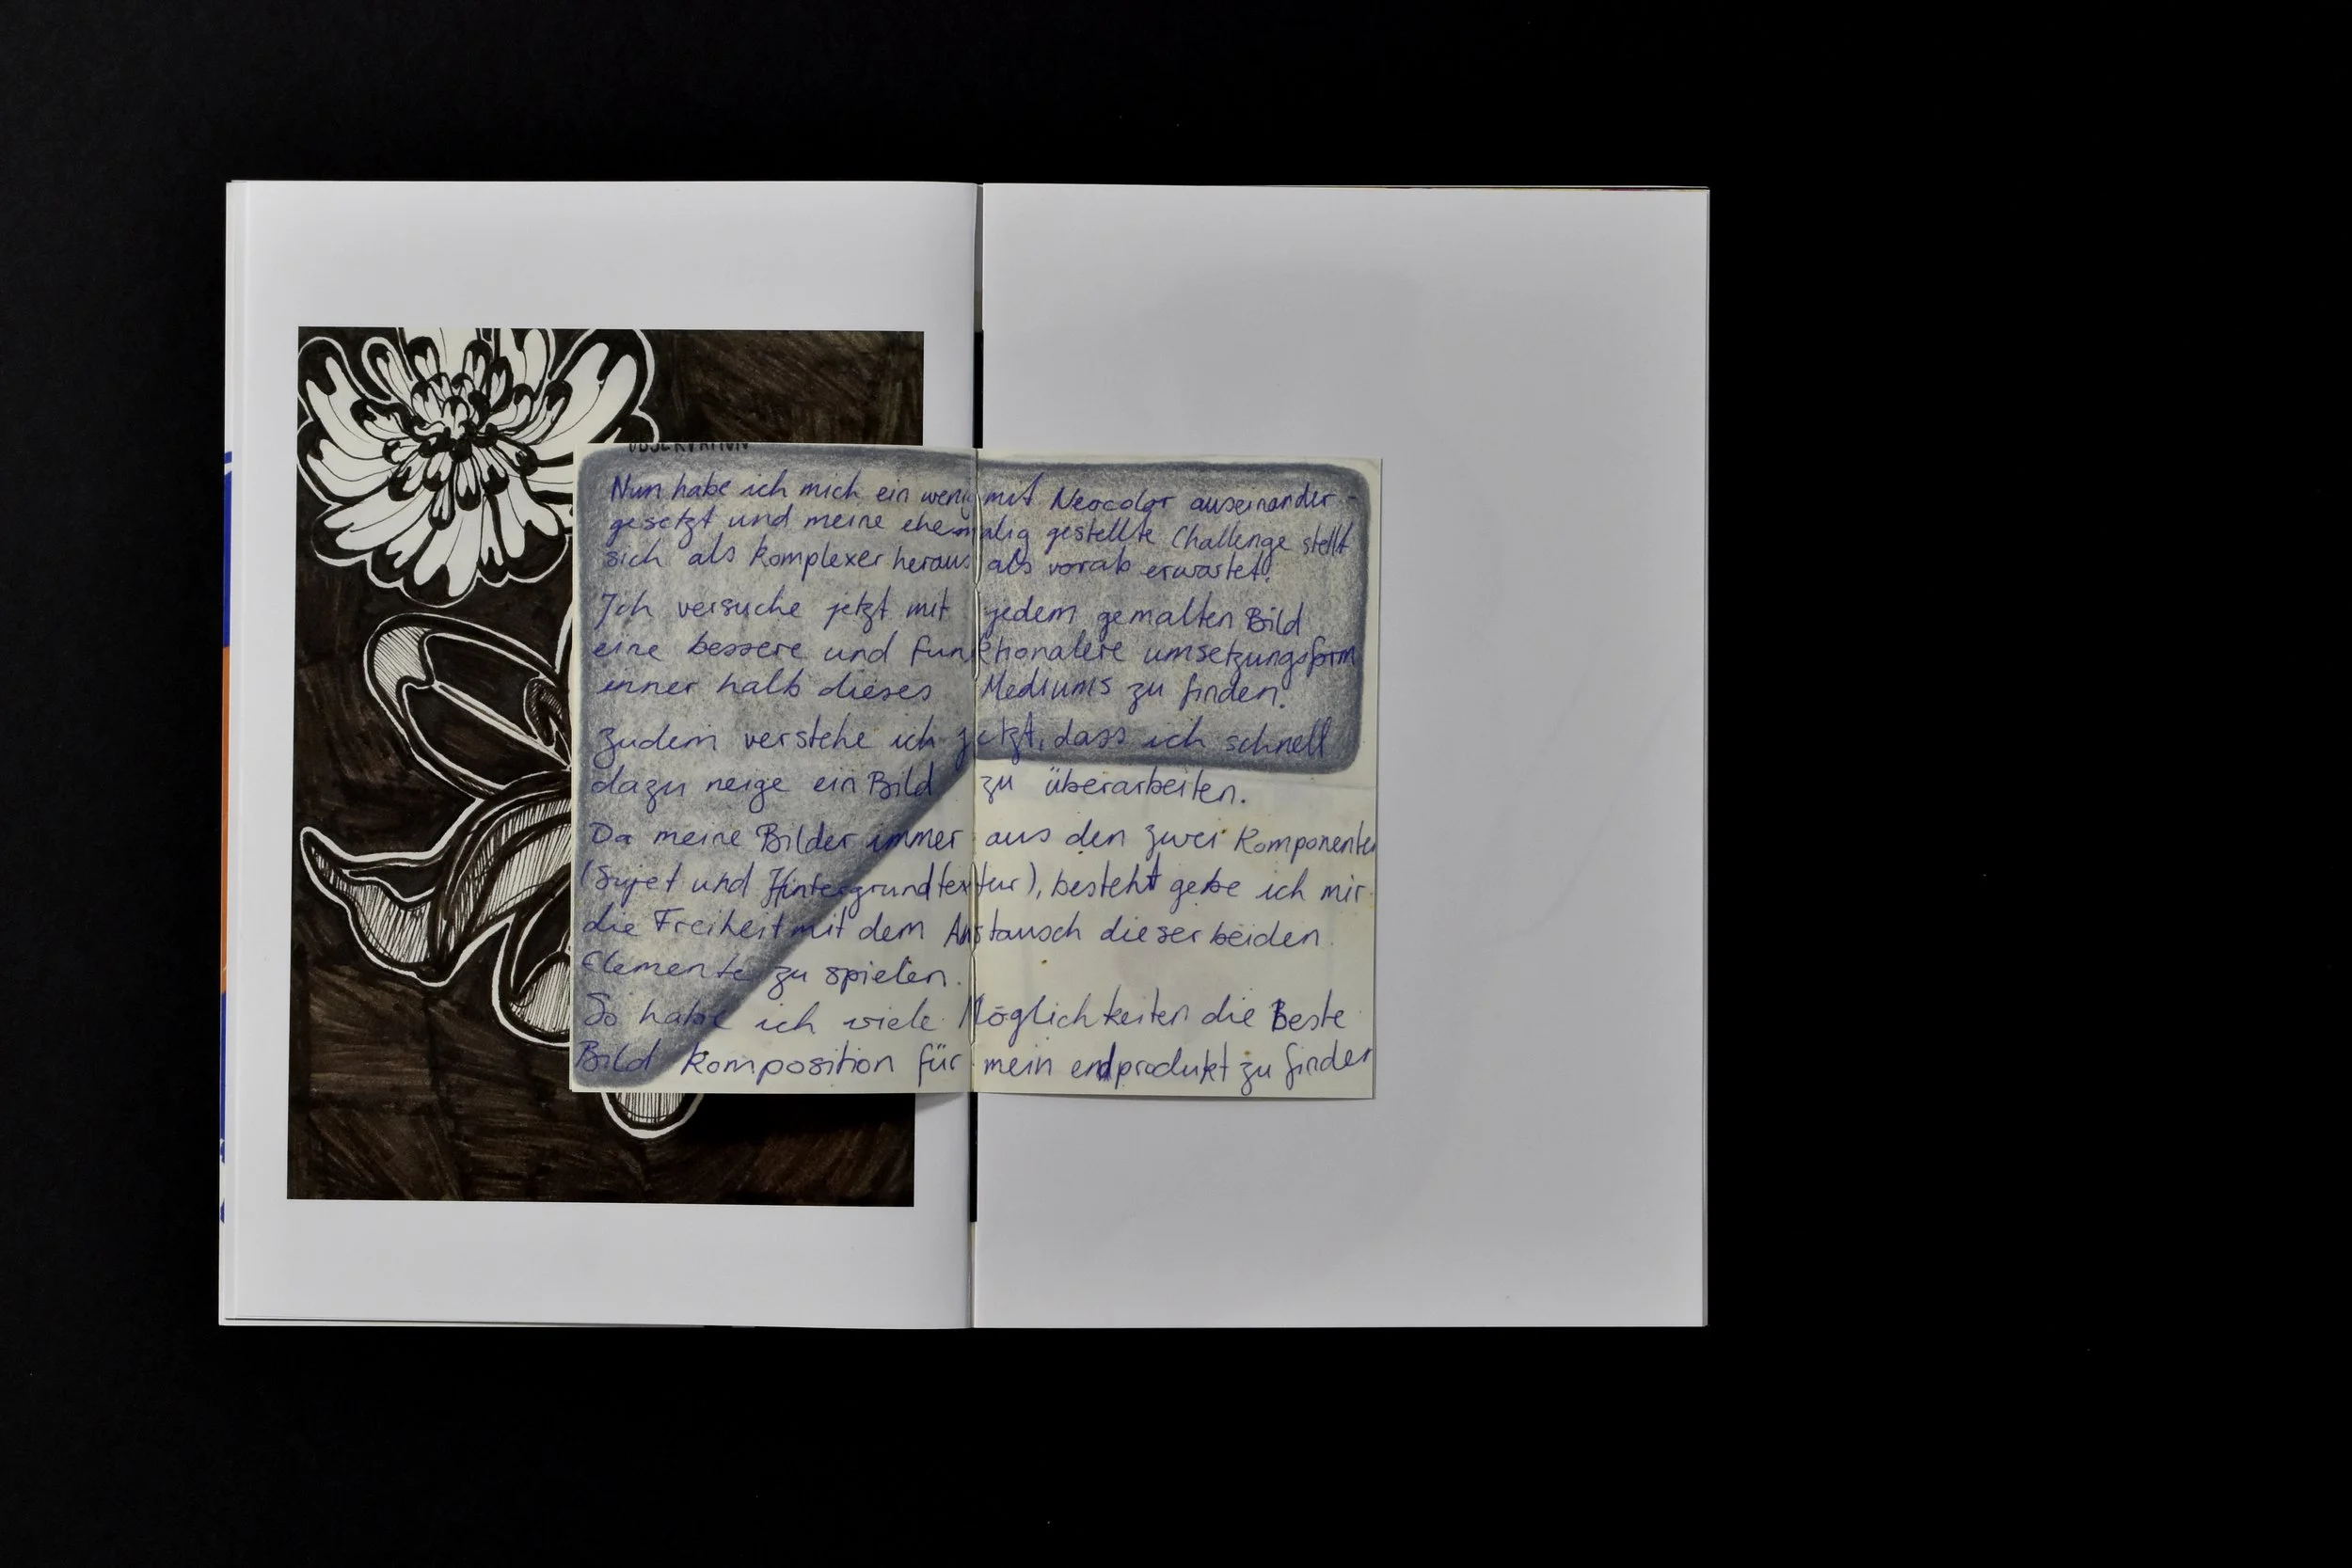 OBSERVATION
Nun habe ich mich ein wenig mit Neocolor auseinander-
gesetzt und meine ehemalig gestellte Challenge stellt
sich als komplexer heraus als vorab erwartet.
Ich versuche jetzt mit jedem gemalten Bild
eine bessere und funktionalere umsetzungsform
inner halb dieses Mediums zu finden.
Zudem verstehe ich jetzt, dass ich schnell
dazu neige ein Bild zu überarbeiten.
Da meine Bilder immer aus den zwei Komponenten
(Sujet und Hintergrundtextur), besteht gebe ich mir
die Freiheit mit dem Austausch dieser beiden
Elemente zu spielen.
So habe ich viele Möglichkeiten die Beste
Bild komposition für mein endprodukt zu finden